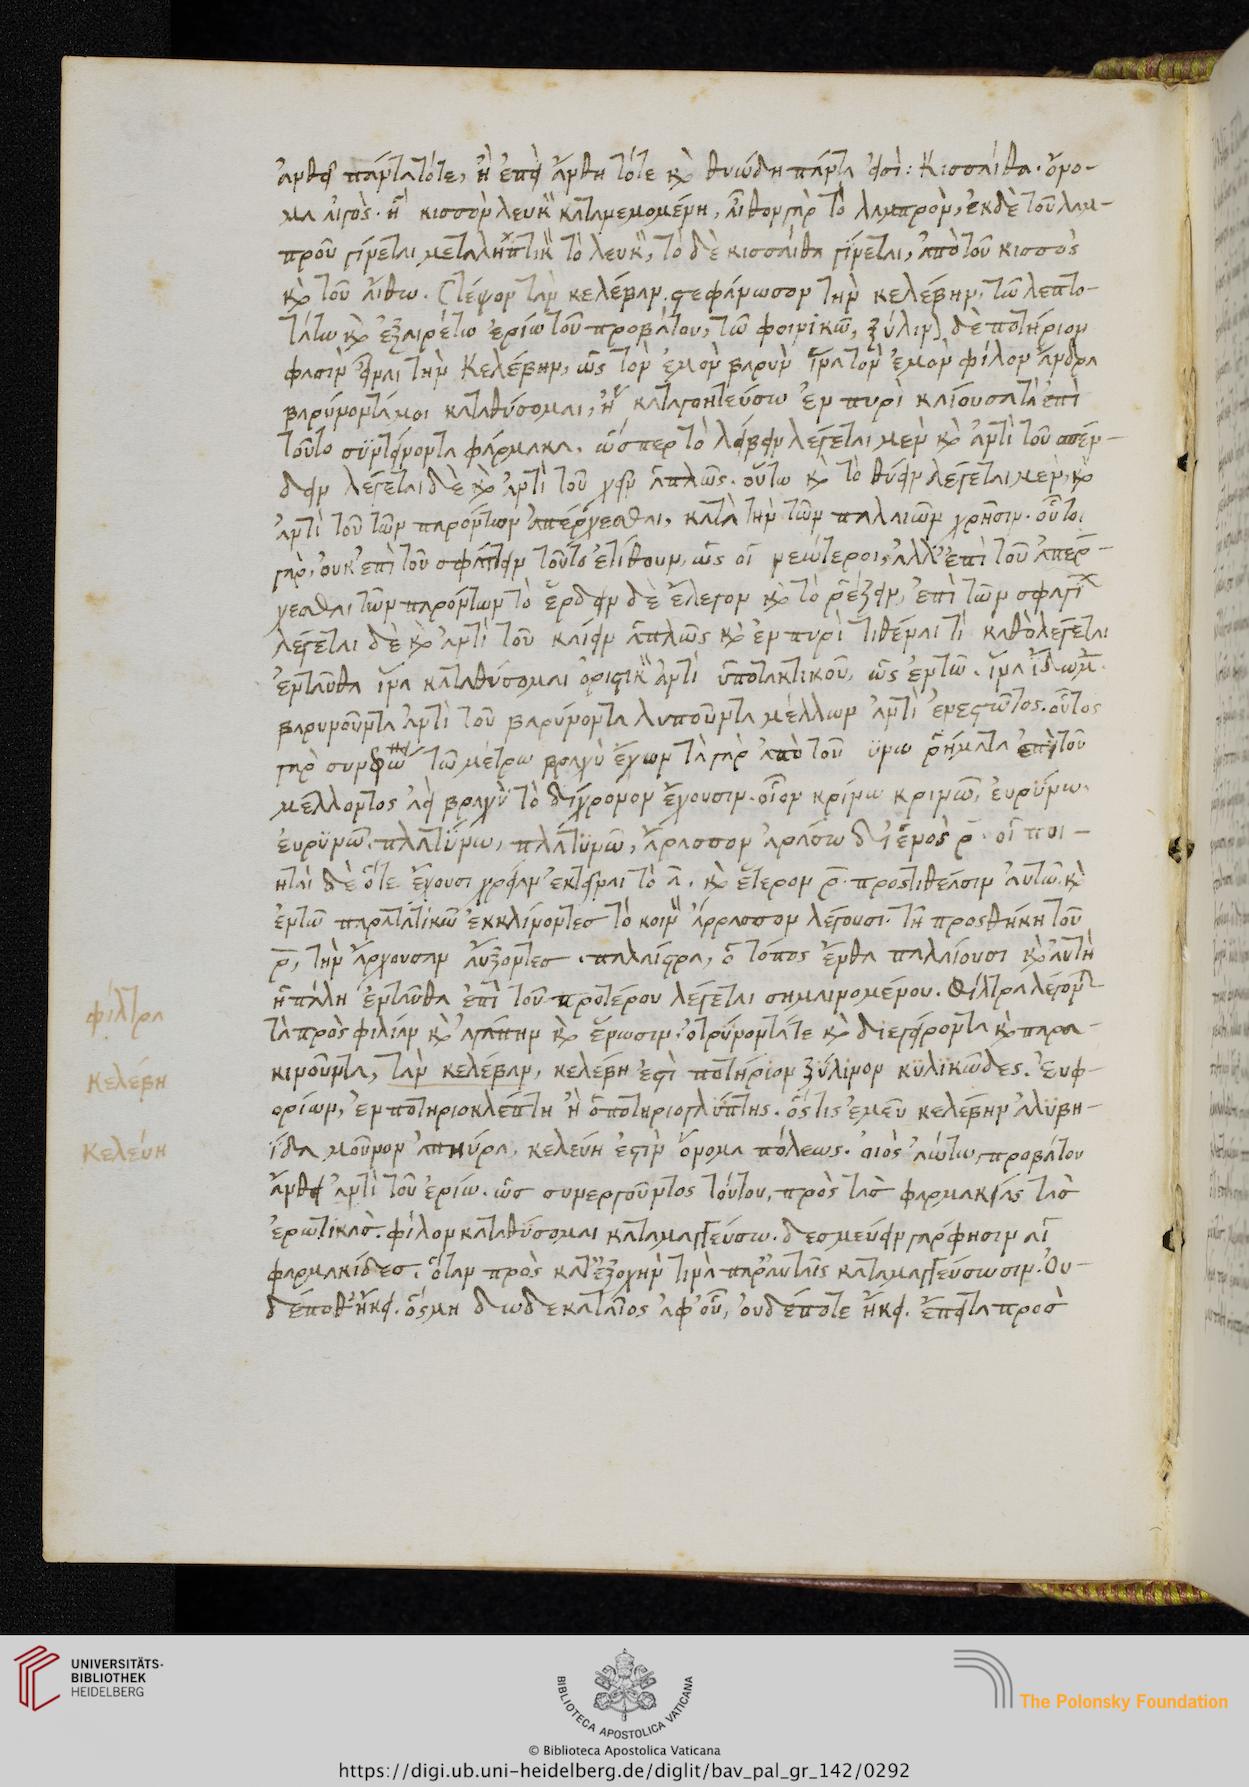 ἀνθεῖ πάντα τότε, ἢ ἐπεὶ ἄνθη τότε καὶ θυώδη πάντα ἐστί: Κισσαίθα. ὄνο-
μα αἰγὸς. ἢ κισσὸν λευκ κατανεμομένη, αἶθον γὰρ τὸ λαμπρὸν, ἐκ δὲ τοῦ λαμ-
προῦ γίνεται μεταληπτικ τὸ λευκ, τὸ δὲ κισσαίθα γίνεται, ἀπὸ τοῦ κισσὸς
καὶ τοῦ αἴθω. Στέψον τὰν κελέβαν. στεφάνωσον τὴν κελέβην, τῶ λεπτο-
τάτω καὶ ἐξαιρέτω ἐρίω τοῦ προβάτου, τῶ φοινικῶ, ξύλινον δὲ ποτήριον
φασὶν εἶναι τὴν Κελέβην, ὡς τὸν ἐμὸν βαρὺν ἵνα τὸν ἐμὸν φίλον ἄνδρα
βαρύνοντά μοι καταθύσομαι, ἢ καταγοητεύσω ἐν πυρὶ καίουσα τὰ ἐπὶ
τοῦτο συντείνοντα φάρμακα. ὥσπερ τὸ λείβειν λέγεται μὲν καὶ ἀντὶ τοῦ σπέν-
δειν λέγεται δὲ καὶ ἀντὶ τοῦ χεῖν ἁπλῶς. οὕτω καὶ τὸ θύειν λέγεται μὲν, καὶ
ἀντὶ τοῦ τῶν παρόντων ἀπέρχεσθαι, κατὰ τὴν τῶν παλαιῶν χρῆσιν. οὗτοι
γὰρ, οὐκ ἐπὶ τοῦ σφάττειν τοῦτο ἐτίθουν, ὡς οἱ νεώτεροι, ἀλλ' ἐπὶ τοῦ ἀπέρ-
χεσθαι τῶν παρόντων τὸ ἔρδειν δὲ ἔλεγον καὶ τὸ ῥέξειν, ἐπὶ τῶν σφαγί
λέγεται δὲ καὶ ἀντὶ τοῦ καίειν ἁπλῶς καὶ ἐν πυρὶ τιθέναι τὶ καθὸ λέγεται
ἐνταῦθα ἵνα καταθύσομαι ὁριστικ ἀντὶ ὑποτακτικοῦ, ὡς ἐν τῶ. ἵνα εἴδωμεν.
βαρυνοῦντα ἀντὶ τοῦ βαρύνοντα λυποῦντα μέλλων ἀντὶ ἐνεστῶτος. οὗτος
γὰρ τῶ μέτρω βραχὺ ἔχων τὰ γὰρ ἀπὸ τοῦ ύνω ῥήματα ἐπὶ τοῦ
μέλλοντος ἀεὶ βραχὺ τὸ δίχρονον ἔχουσιν. οἷον κρίνω κρινῶ, εὐρύνω
εὐρυνῶ. πλατύνω, πλατυνῶ, ἄρασσον ἀράσω δι' ἑνὸς ρ. οἱ ποι-
ηταὶ δὲ ὅτε ἔχουσι χρείαν ἐκτεῖναι τὸ α. καὶ ἕτερον ρ. προστιθέασιν αὐτῶ. καὶ
ἐν τῶ παρατατικῶ ἐκκλίνοντες τὸ κοιν ἄρρασσον λέγουσι. τῆ προσθήκη τοῦ
ρ, τὴν ἄρχουσαν αὔξοντες. παλαίστρα, ὁ τόπος ἔνθα παλαίουσι καὶ αὐτὴ
ἡ πάλη ἐνταῦθα ἐπὶ τοῦ προτέρου λέγεται σημαινομένου. Φίλτρα λέγονται
τὰ πρὸς φιλίαν καὶ ἀγάπην καὶ ἔρωσιν. ὀτρύνοντά τε καὶ διεγείροντα καὶ παρα-
κινοῦντα, τὰν κελέβαν, κελέβη ἐστὶ ποτήριον ξύλινον κυλικῶδες. Εὐφ-
ορίων, ἐν ποτηριοκλέπτη ἢ ὁ ποτηριογλύπτης. ὅστις ἐμεῦ κελέβην ἀλυβη-
ίδα μοῦνον ἀπηύρα, κελεύη ἐστὶν ὄνομα πόλεως. οἰὸς ἀώτω, προβάτου
ἄνθει ἀντὶ τοῦ ἐρίω. ὡς συνεργοῦντος τούτου, πρὸς τὰς φαρμακείας τὰς
ἐρωτικάς. φίλον καταθύσομαι καταμαγγεύσω. δεσμεύειν γάρ φησιν αἱ
φαρμακίδες. ὅταν πρὸς κατ' ἐξοχήν τινὰ παρ' αὐταῖς καταμαγγεύσωσιν. Οὐ-
δέποθ' ἥκει. ὅς μη δωδεκαταῖος ἀφ' οὗ, οὐδέποτε ἥκει. ἔπειτα πρὸς
φίλτρα
κελέβη
κελεύη
UNIVERSITÄTS-
BIBLIOTHEK
HEIDELBERG
BIBLIOTECA APOSTOLICA VATICANA
The Polonsky Foundation
© Biblioteca Apostolica Vaticana
https://digi.ub.uni-heidelberg.de/diglit/bav_pal_gr_142/0292